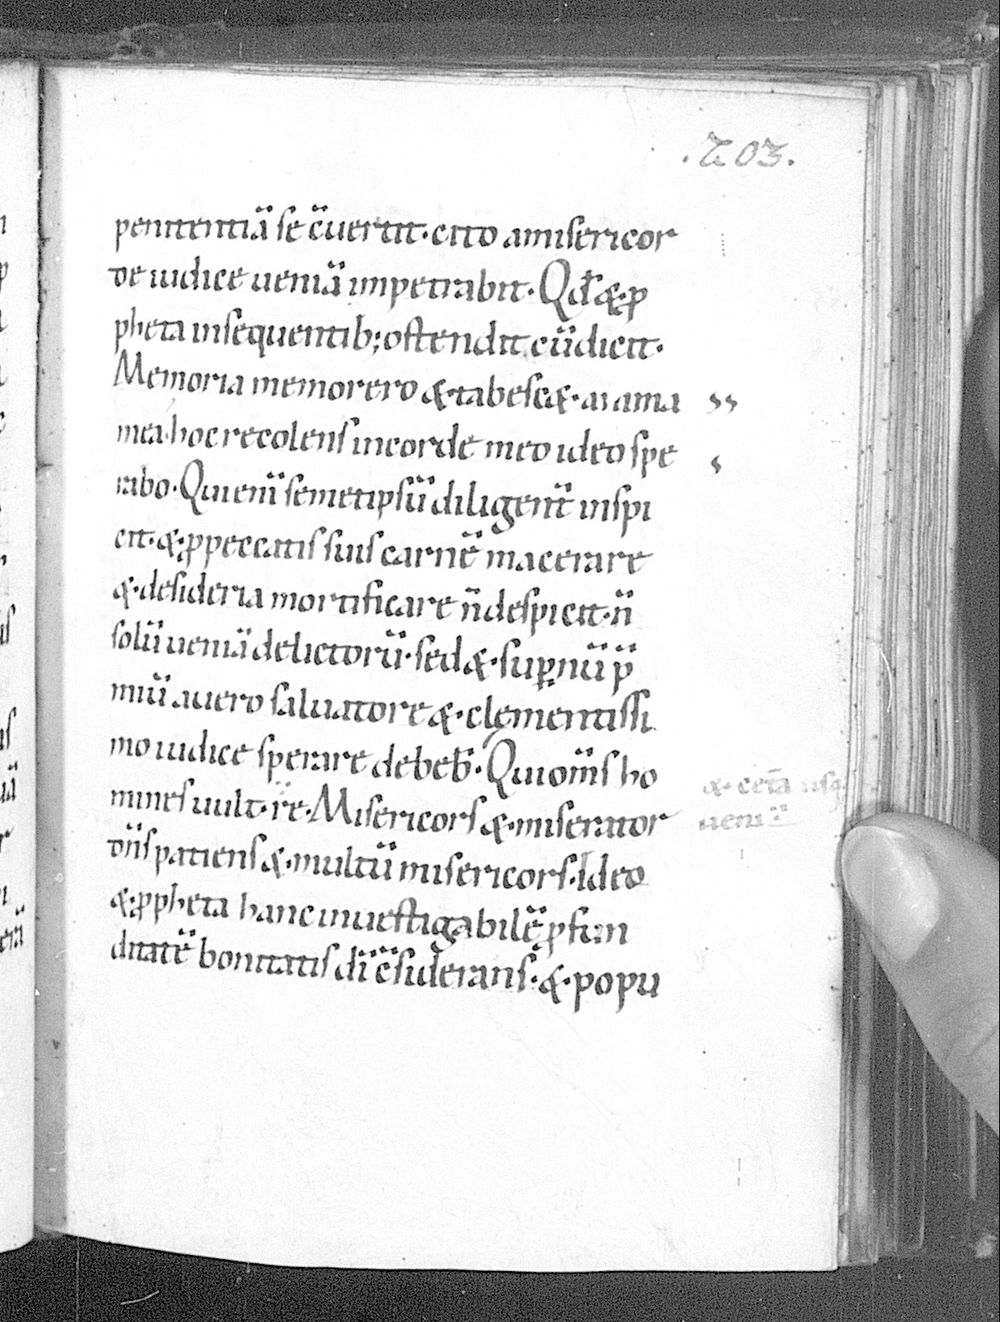 .203.
penitentiā se c̄uertit· cito a misericor
de iudice ueniā impetrabit· Qd̄ &· ꝓ
pheta in sequentib; ostendit cū dicit·
Memoria memor ero &· tabesc&· anima
mea· hoc recolens in corde meo ideo spe
rabo· Qui eni semetipsū diligent̄ inspi
cit· &· ꝓ peccatis suis carnē macerare
&· desideria mortificare n̄ despicit· n̄
solū ueniā delictorū· sed &· suꝑnū p̄
miū a uero saluatore &· clementissi
mo iudice sperare debeb· Qui om̄s ho
mines uult· Misericors &· miserator
dn̄s patiens &· multū misericors· Ideo
&· ꝓpheta hanc inuestigabilē ꝓfun
ditatē bonitatis dī c̄siderans· &· popu
&· cet̄a usq